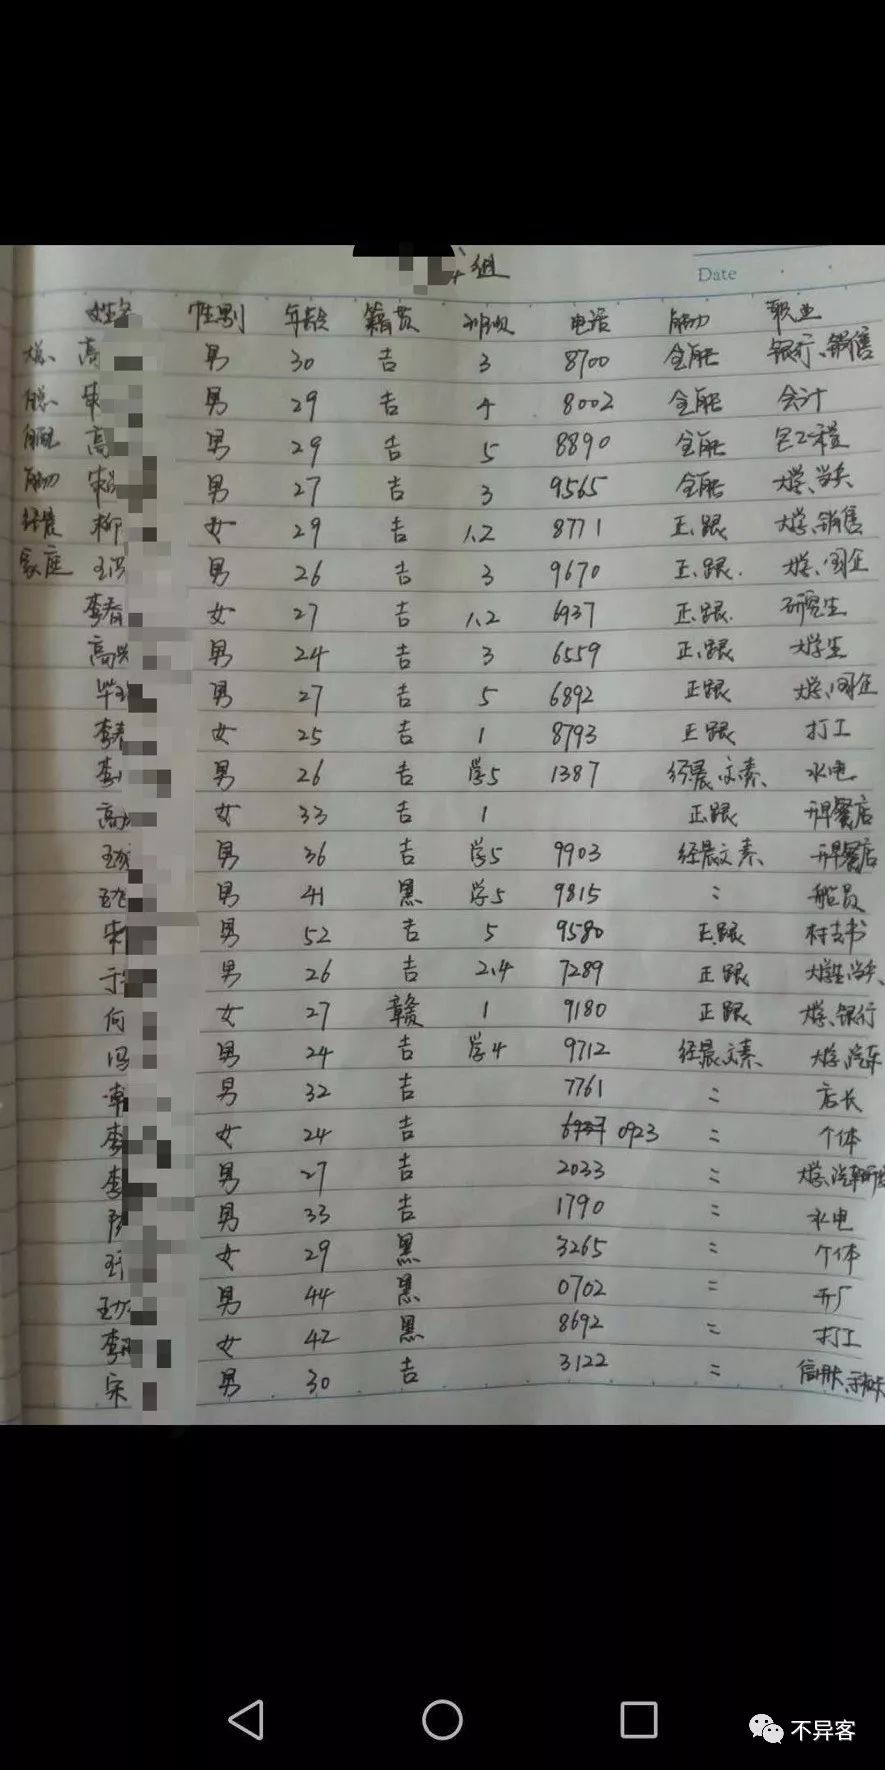 组
Date
姓名 性别 年龄 籍贯 电话 能力 职业
高 男 30 吉 3 8700 全能 银行、销售
男 29 吉 4 8002 全能 会计
高 男 29 吉 5 8890 全能 包工程
能力 男 27 吉 3 9565 全能 大学、
经晨 柳 女 29 吉 1.2 8771 正.跟 大学、销售
家庭 王冯 男 26 吉 3 9670 正.跟. 大学、国企
李春 女 27 吉 1.2 6937 正.跟. 研究生
高兴 男 24 吉 3 6559 正.跟 大学生
毕 男 27 吉 5 6892 正跟 大学、国企
李春 女 25 吉 1 8793 正跟 打工
李 男 26 吉 学5 1387 经晨、文素、 水电
高 女 33 吉 1 正跟 开早餐店
王 男 36 吉 学5 9903 经晨文素、 开早餐店
男 41 黑 学5 9815 〃 船员
男 52 吉 5 9580 正.跟 村支书
于 男 26 吉 2.4 7289 正跟
何 女 27 赣 1 9180 正跟 大学、银行
冯 男 24 吉 学4 9712 经晨、文素、 大学、汽车
男 32 吉 7761 〃 店长
李 女 24 吉 6937 0923 〃 个体
李 男 27 吉 2033 〃
男 33 吉 1790 〃 水电
王 女 29 黑 3265 〃 个体
王 男 44 黑 0702 〃 开厂
李 女 42 黑 8692 〃 打工
宋 男 30 吉 3122 〃
不异客